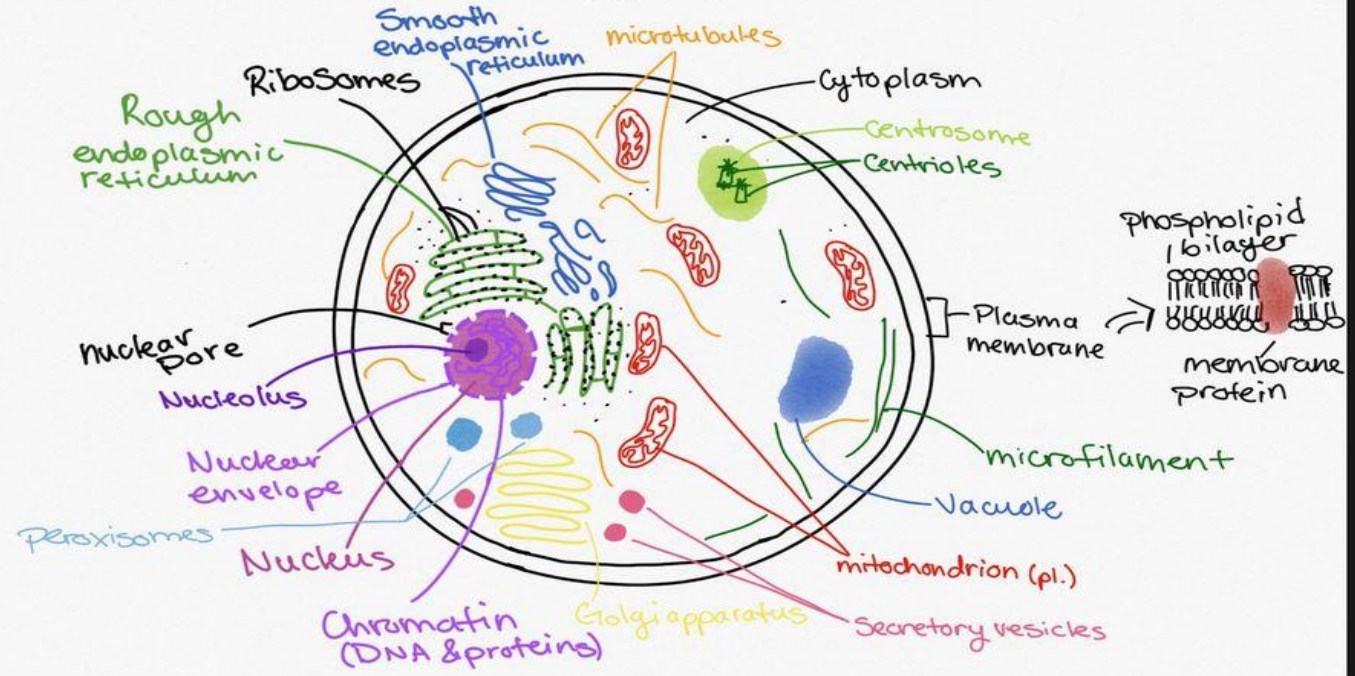 Smooth
endoplasmic
reticulum
microtubules
Ribosomes
Cytoplasm
Rough
endoplasmic
reticulum
centrosome
Centrioles
phospholipid
bilayer
nuclear
pore
Plasma
membrane
membrane
protein
Nucleolus
Nuclear
envelope
microfilament
Vacuole
Peroxisomes
Nucleus
mitochondrion (pl.)
Chromatin
(DNA & proteins)
Golgi apparatus
Secretory vesicles